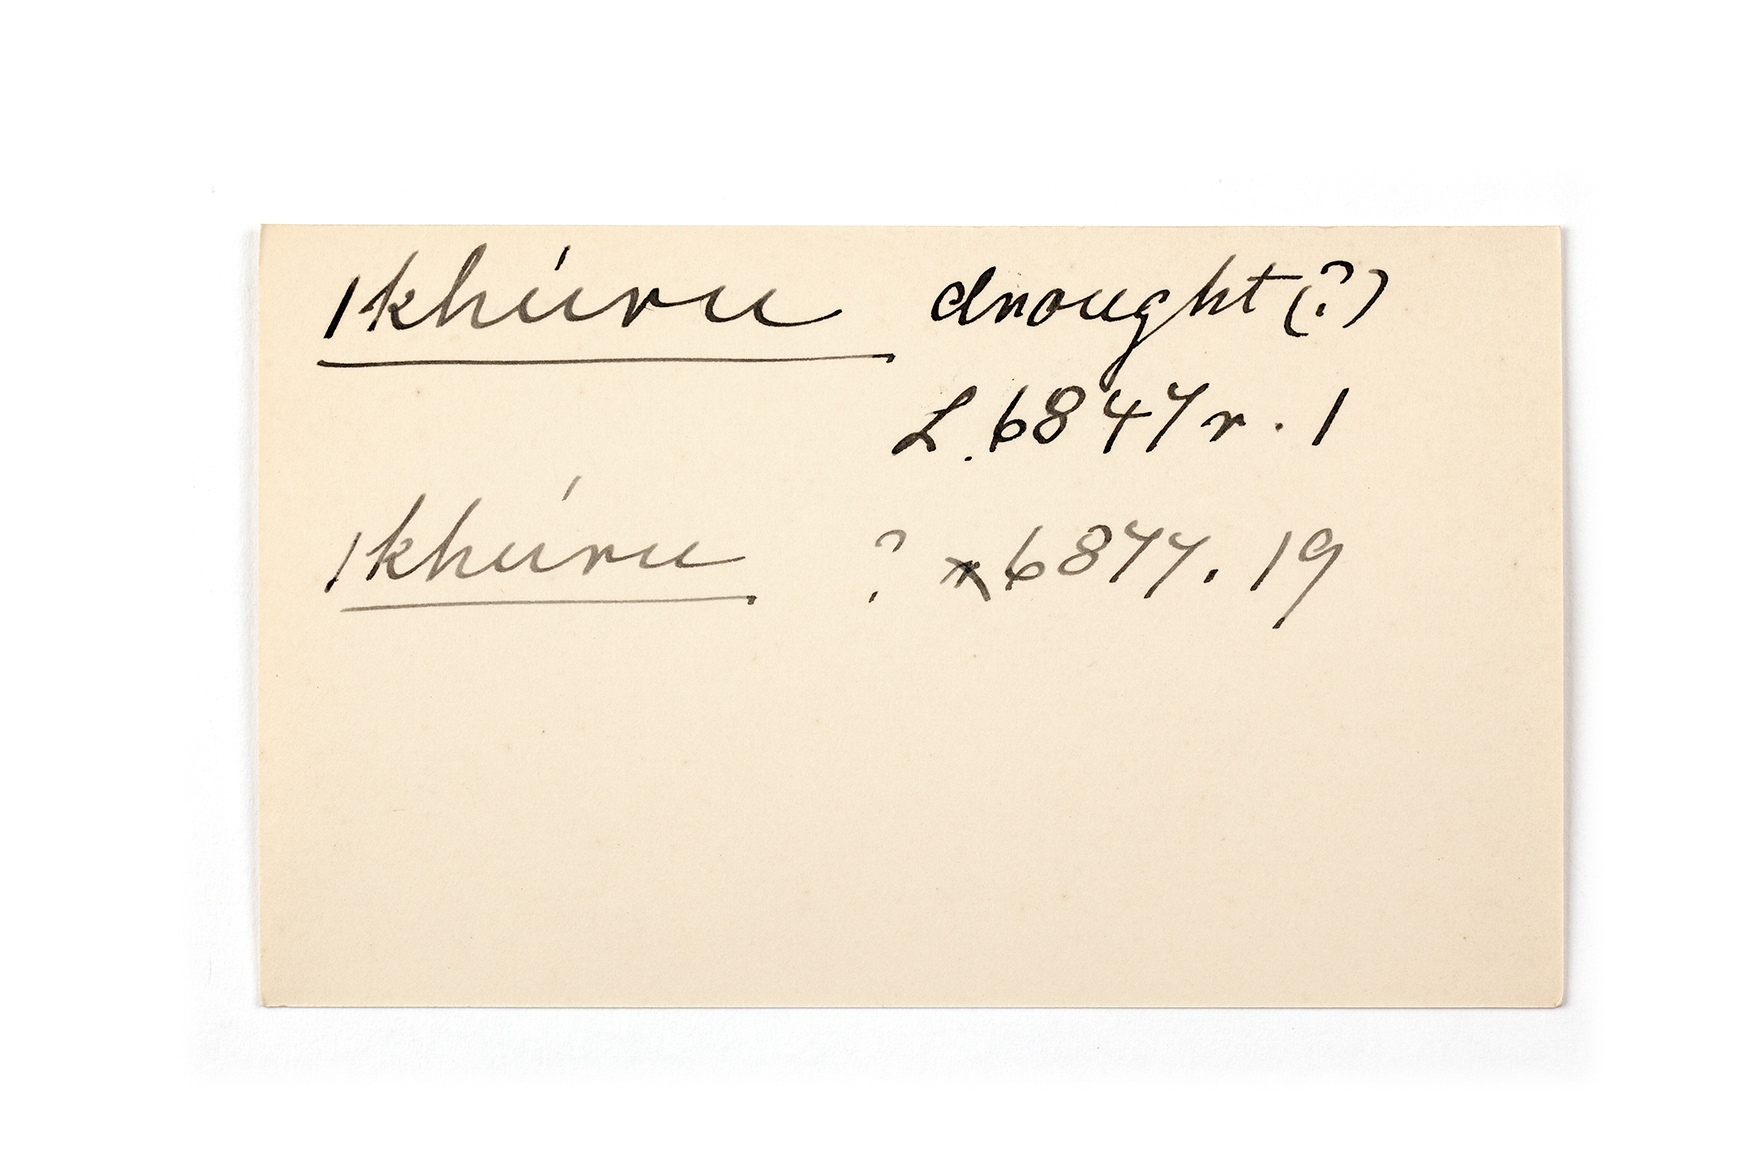 |khúru drought (?)
L. 6847 r. 1
|khúru ? 6877. 19